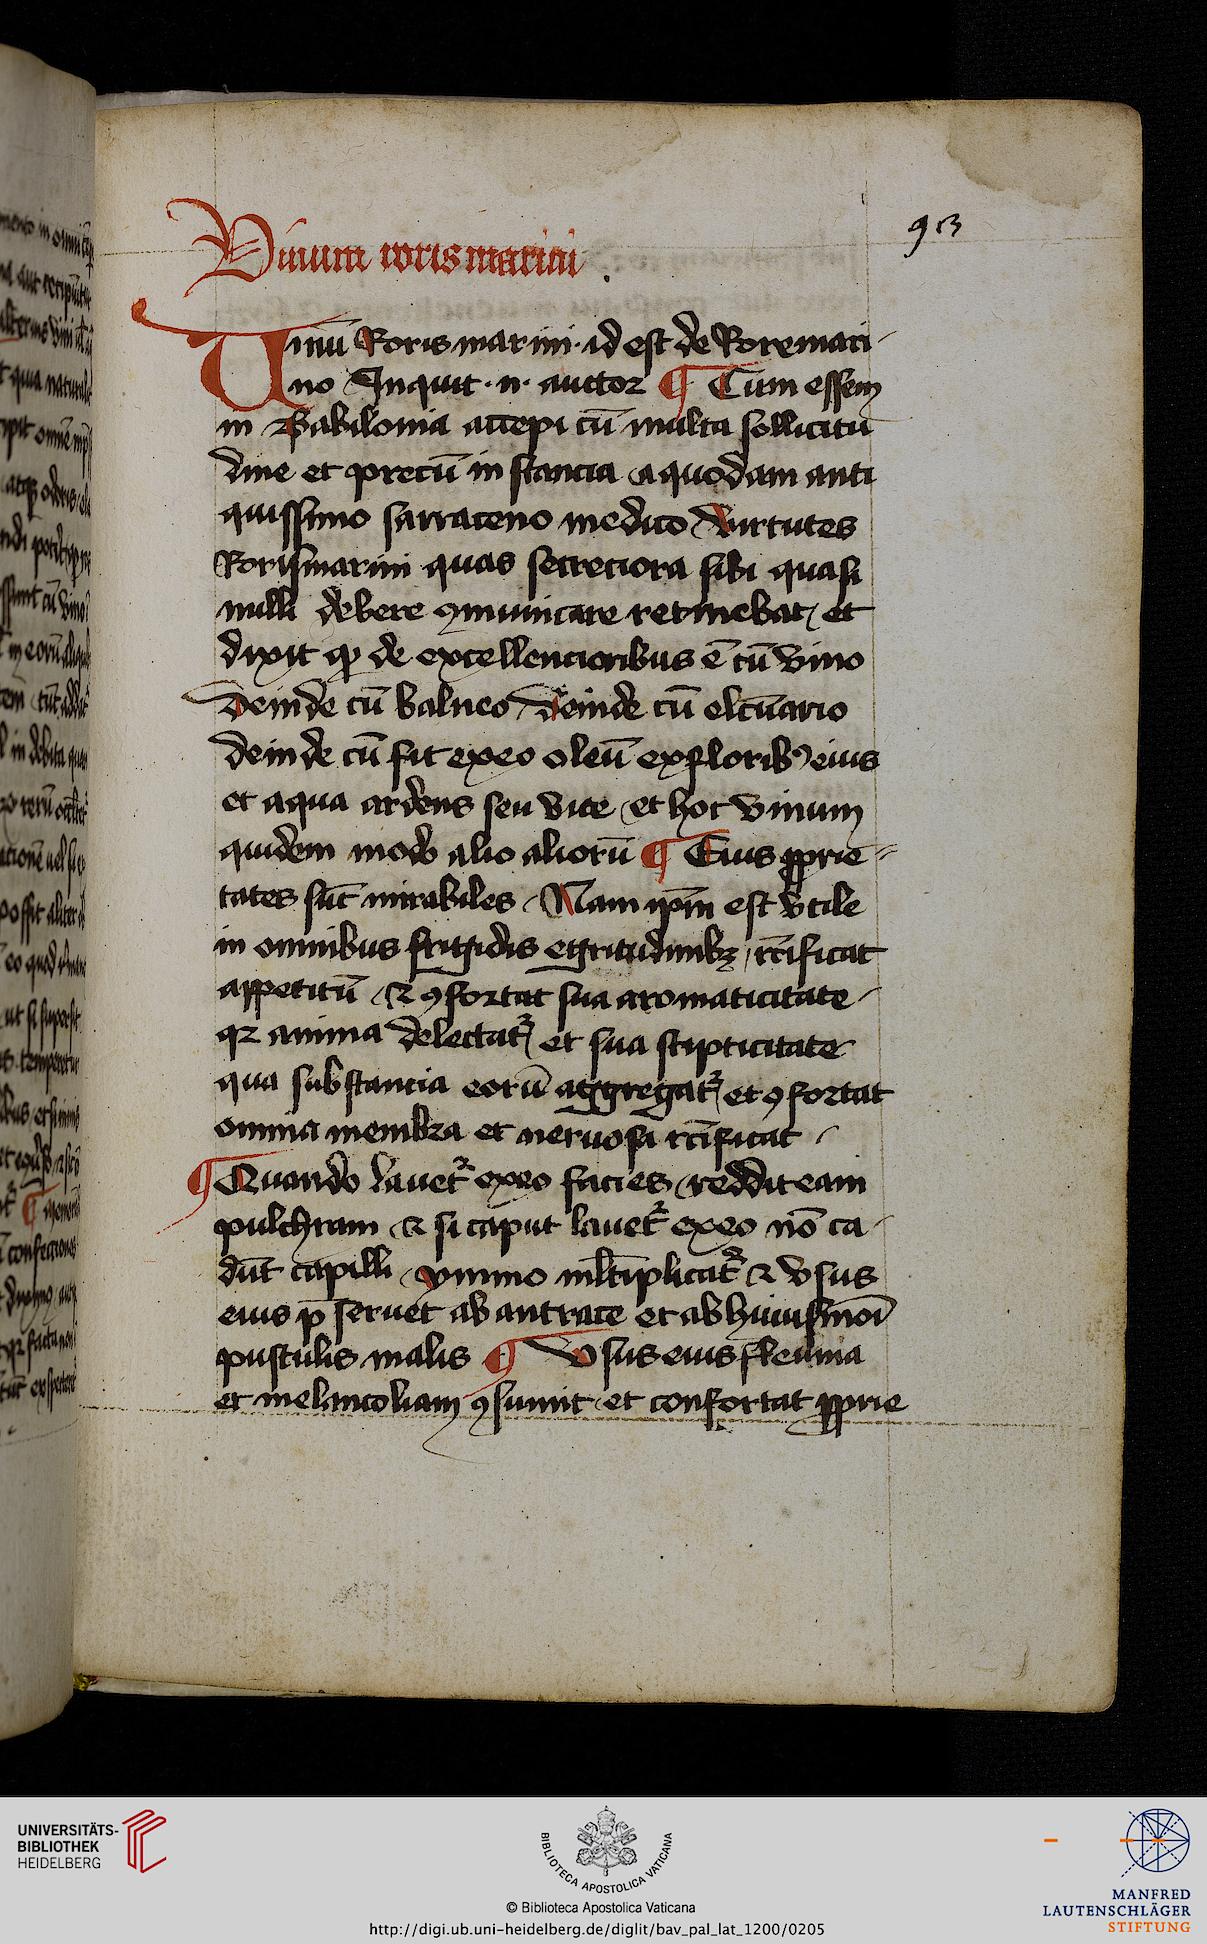 93
Vinum rorismarini
Uinū Roris marini · id est de Roremari
no Inquit · n · auctor ¶ Cum essem
in Babilonia accepi cū multa sollicitu
dine et precū in stancia a quodam anti
quissimo sarraceno medico virtutes
Rorismarini quas secreciora sibi quasi
nulli debere ꝯmunicare retinebat / et
dixit ꝙ de excellencioribus ē cū vino
deinde cū balneo / deinde cū elc̄uario
deinde cū fit exeo oleū exfloribꝰ eius
et aqua ardens seu vite / et hoc vinum
quidem modo alio aliorū ¶ Eius ꝓprie
tates sūt mirabiles / Nam ip̄m est vtile
in omnibus frigidis egritudinibꝫ / rc̄ificat
appetitū / ⁊ ꝯfortat sua aromaticitate /
qꝛ anima delectat᷑ / et sua stipticitate
qua substancia eorū aggregat᷑ / et ꝯfortat
omnia membra et neruosa rc̄ificat /
¶ Quando lauet᷑ exeo facies / reddit eam
pulchram / ⁊ si caput lauet᷑ exeo nō ca
dūt capilli / ymmo ml̄tiplicat᷑ ⁊ vsus
eius p̄ seruet ab antrace et ab huiusmōi
pustulis malis ¶ Vsus eius fleuma
et melancoliam ꝯsumit / et confortat ꝓprie
UNIVERSITÄTS-
BIBLIOTHEK
HEIDELBERG
BIBLIOTECA APOSTOLICA VATICANA
© Biblioteca Apostolica Vaticana
http://digi.ub.uni-heidelberg.de/diglit/bav_pal_lat_1200/0205
MANFRED
LAUTENSCHLÄGER
STIFTUNG